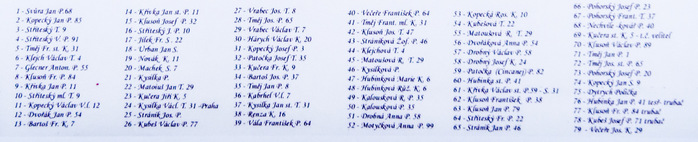 1 - Svůra Jan P.68
2 - Kopecký Jan P. 85
3 - Stříteský T. 9
4 - Stříteský V. P. 91
5 - Tměj Fr. st. K. 31
6 - Klejch Václav T. 4
7 - Glecner Anton. P. 55
8 - Kluson Fr. P. 84
9 - Křivka Jan P. 11
10 - Stříteský ml. T. 9
11 - Kopecký Václav V.l. 12
12 - Dvořák Jan P. 54
13 - Bartoš Fr. K. 7
14 - Křivka Jan st. P. 11
15 - Klusoň Josef P. 32
16 - Stříteský J. P. 10
17 - Jílek Fr. S . 22
18 - Urban Jan S.
19 - Novák K. 11
20 - Machek S. 7
21 - Kysilka P.
22 - Matoušů Jan T. 29
23 - Kučera Jiří K. 5
24 - Kysilka Václ. T. 31 -Praha
25 - Stráník Jos. P.
26 - Kubeš Václav P. 77
27 - Vrabec Jos. T. 8
28 - Tměj Jos. P. 65
29 - Vrabec Václav T. 7
30 - Hárých Václav K. 20
31 - Kopecký Josef P. 3
32 - Patočka Josef T. 35
33 - Kučera Fr. K. 9
34 - Bartoš Jos. P. 37
35 - Tměj Jan P. 8
36 - Kabrhel Vl. 7
37 - Kysilka Jan st. T. 31
38 - Renza K. 16
39 - Vála František P. 64
40 - Večeře František P. 64
41 - Tměj Frant. ml. K. 31
42 - Klusoň Jos. T. 47
43 - Stráníková Žof. P. 46
44 - Klejchová T. 4
45 - Matoušová R. T. 29
46 - Kysilková P.
47 - Hubínková Marie K. 6
48 - Hubínková Růž. K. 6
49 - Kalousková R. P. 35
50 - Kalousková P. 35
51 - Drobná Anna P. 58
52 - Motyčková Anna P. 99
53 - Kopecká Ros. K. 10
54 - Kubešová T. 22
55 - Matoušová R. T. 29
56 - Dvořáková Anna P. 54
57 - Drobný Václav P. 58
58 - Drobný Josef K. 24
59 - Patočka (Cincaned) P. 82
60 - Hubínka st. P. 41
61 - Křivka Václav st. P.59 - S. 31
62 - Klusoň František P. 38
63 - Klusoň Jan P. 79
64 - Stříteský Fr. P. 22
65 - Stráník Jan P. 46
66 - Pohorský Josef P. 23
67 - Pohorský Frant. T. 37
68 - Nechvíle -kovář P. 40
69 - Kučera st. K. 5 - t.č. velitel
70 - Klusoň Václav P. 89
71 - Tměj Jan P. 1
72 - Tměj Jos. st. P. 65
73 - Pohorský Josef P. 20
74 - Kopecký Jan S. 9
75 - Dytrych Polička
76 - Hubínka Jan P. 41 test- trubač
77 - Klusoň Fr. P. 84 trubač
78 - Kubeš Josef P. 71 trubač
79 - Večeře Jos. K. 29